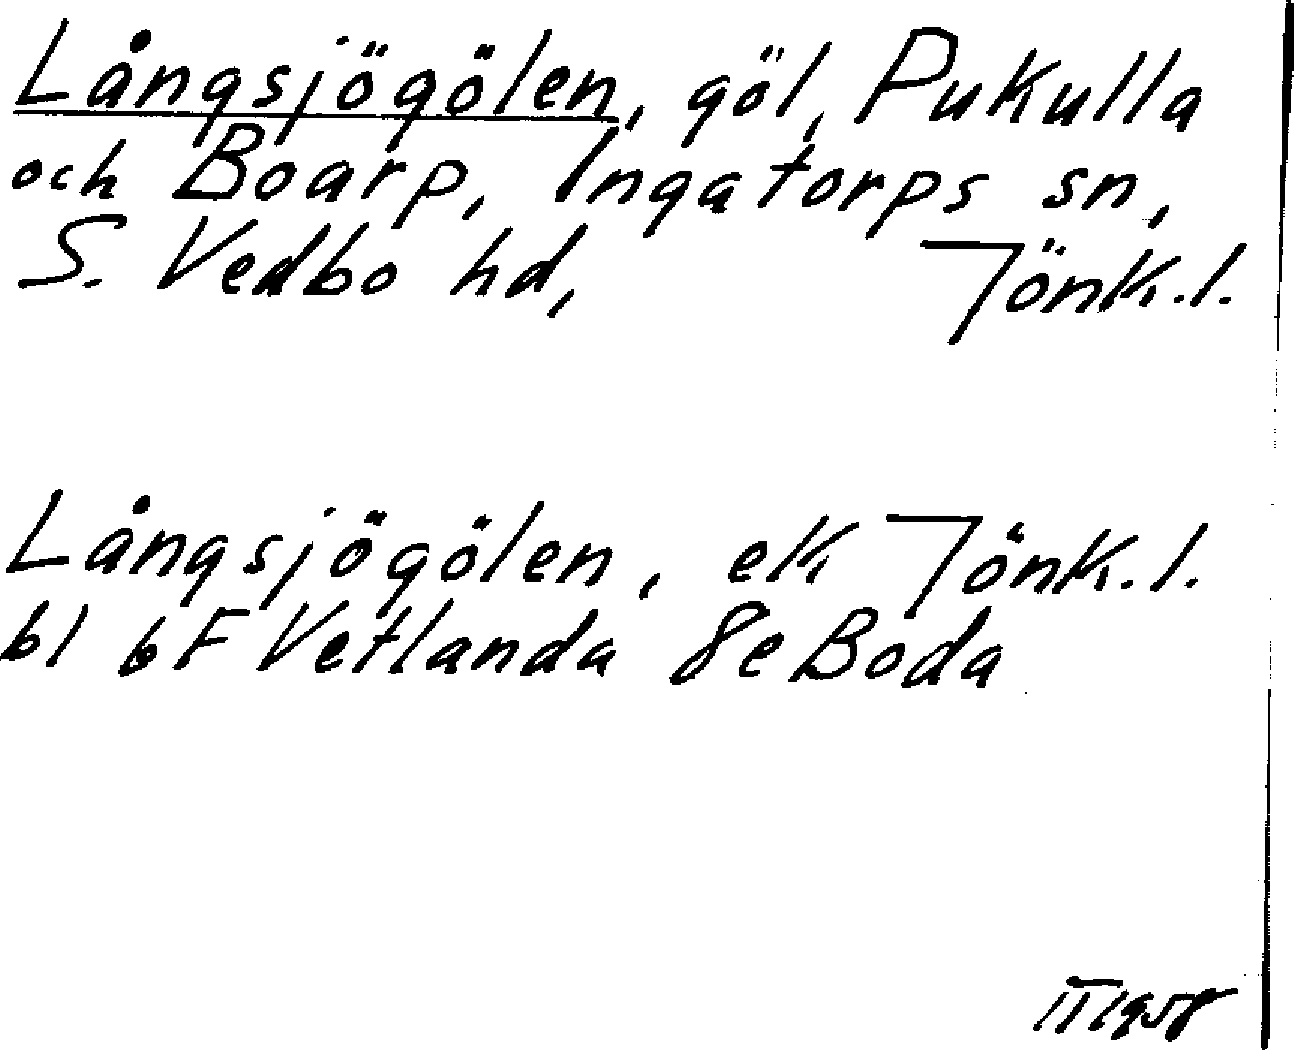 Långsjögölen, göl, Pukulla
och Boarp, Ingatorps sn,
S. Vedbo hd, Jönk.l.
Långsjögölen, ek Jönk.l.
bl 6F Vetlanda 8e Boda